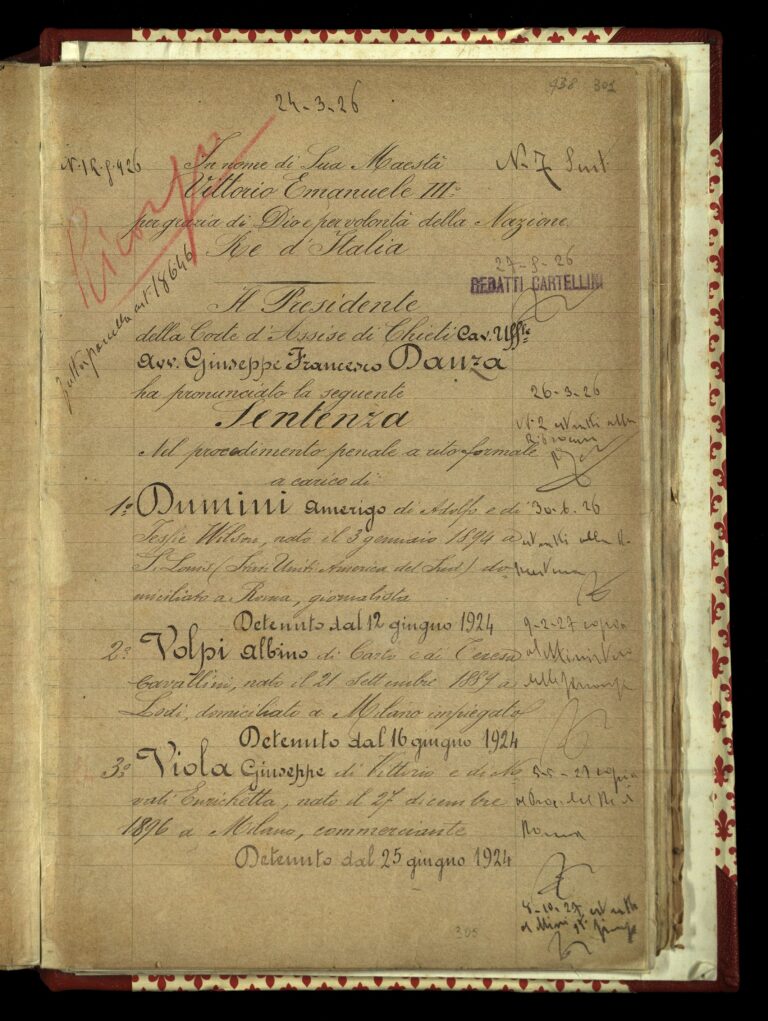 938 301
24-3-26
In nome di Sua Maestà
N. 7 Sent
Vittorio Emanuele III°
per grazia di Dio e per volontà della Nazione
Re d'Italia
Ricorso
27-9-26
REDATTI CARTELLINI
Il Presidente
della Corte d'Assise di Chieti Cav. Uff.le
Avv. Giuseppe Francesco Danza
ha pronunciato la seguente
26-3-26
Sentenza
Nel procedimento penale a rito formale
a carico di
1° Dumini Amerigo di Adolfo e di
30.6.26
Jessie Wilson, nato il 3 gennaio 1894 a
S. Louis (Stati Uniti America del Sud) do
miciliato a Roma, giornalista
Detenuto dal 12 giugno 1924
9-2-27 copia
2° Volpi Albino di Carlo e di Teresa
al Ministero
Cavallini, nato il 21 Settembre 1889 a
Lodi, domiciliato a Milano impiegato
Detenuto dal 16 giugno 1924
3° Viola Giuseppe di Vittorio e di No
copia
vati Enrichetta, nato il 27 dicembre
al Proc. del Re di
1896 a Milano, commerciante
Roma
Detenuto dal 25 giugno 1924
8-10-27
305